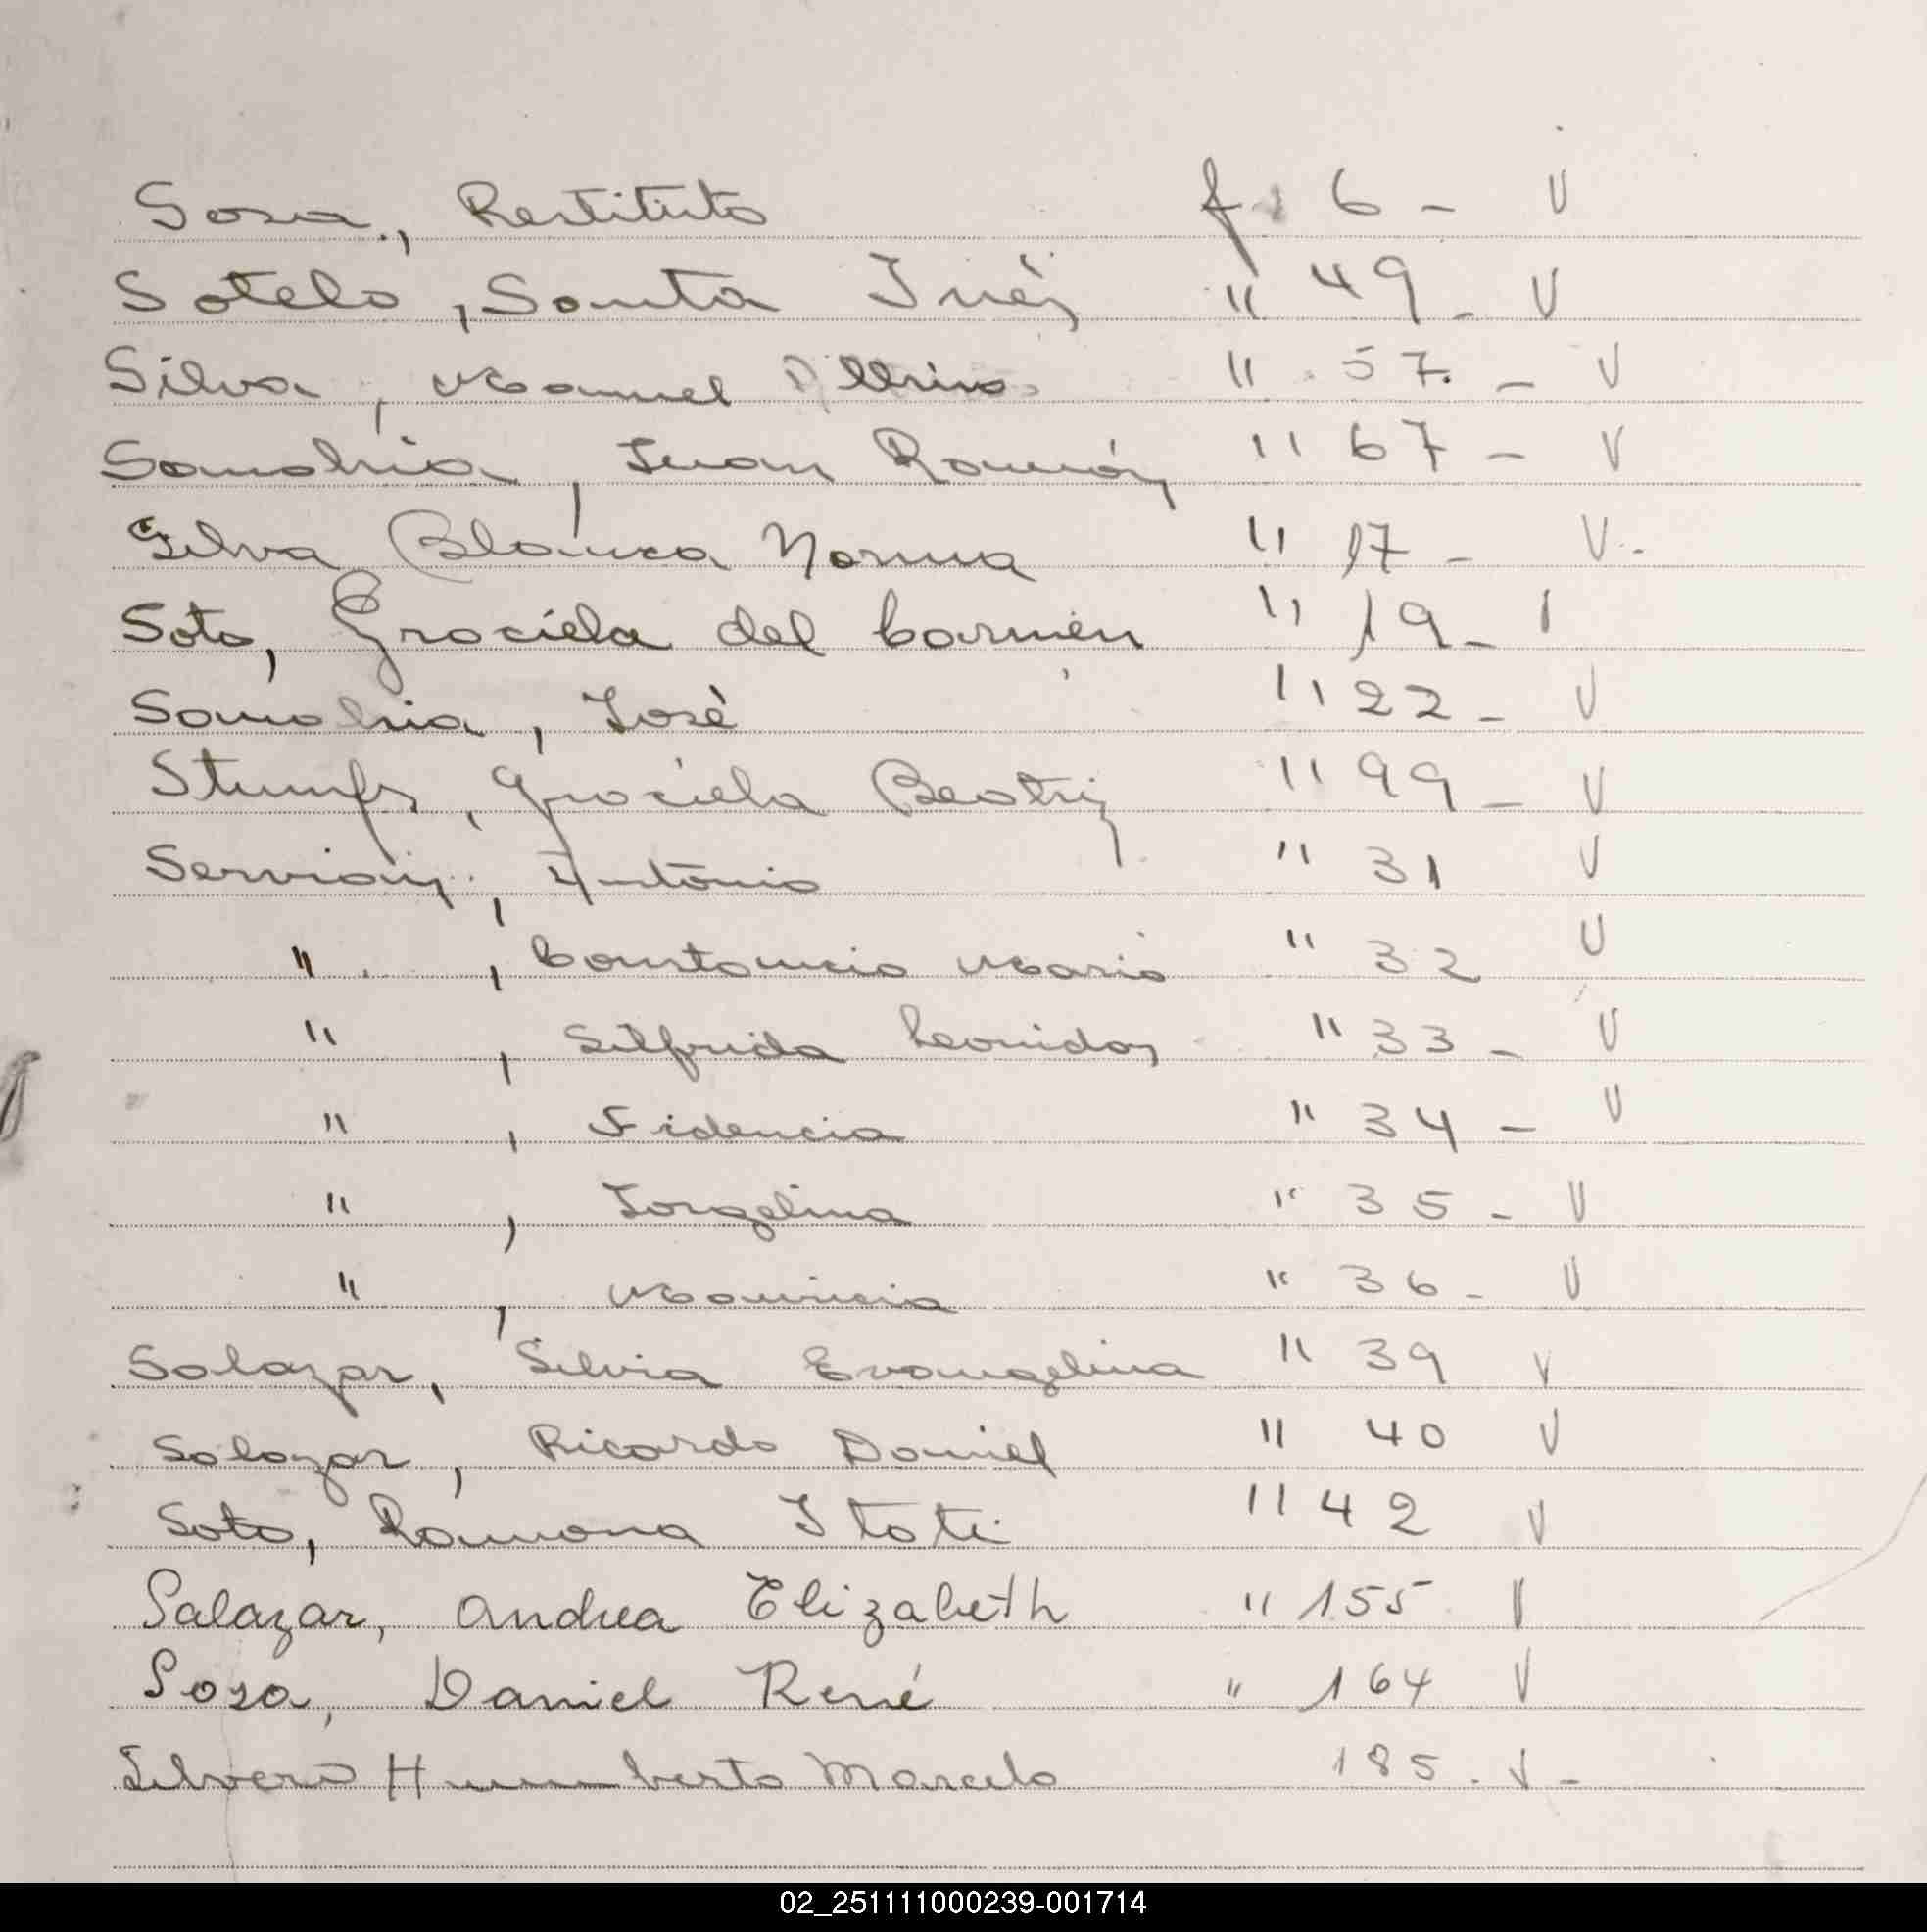 Sosa, Restituto f 6 - V
Sotelo, Santa Inés " 49 - V
Silva, Manuel " 57. - V
Sanabria, Juan Ramón " 67 - V
Silva Blanca Norma " 17 - V.
Soto, Graciela del Carmen " 19 -
Sanabria, José " 22 - V
Stumfs, Graciela Beatriz " 99 - V
Servian, Antonio " 31 V
" , Constancio Mario " 32 V
" , Silfrida Leonidas " 33 - V
" , Fidencia " 34 - V
" , Jorgelina " 35 - V
" , Mauricia " 36 - V
Salazar, Silvia Evangelina " 39 V
Salazar, Ricardo Daniel " 40 V
Soto, Ramona Itati " 42 V
Salazar, Andrea Elizabeth " 155 V
Sosa, Daniel René " 164 V
Silvero Humberto Marcelo 185. V -
02_251111000239-001714